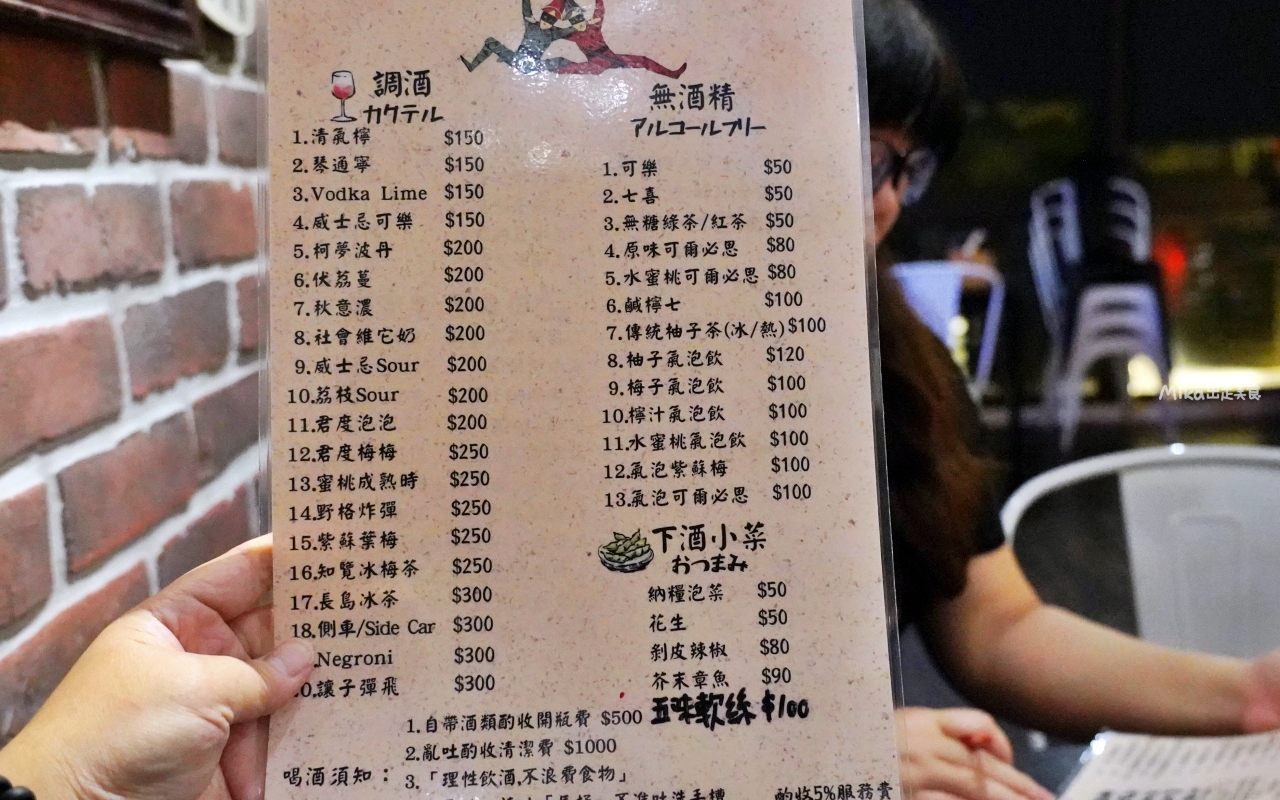 調酒
カクテル
1.清氣檸 $150
2.琴通寧 $150
3.Vodka Lime $150
4.威士忌可樂 $150
5.柯夢波丹 $200
6.伏荔蔓 $200
7.秋意濃 $200
8.社會維它奶 $200
9.威士忌Sour $200
10.荔枝Sour $200
11.君度泡泡 $200
12.君度梅梅 $250
13.蜜桃成熟時 $250
14.野格炸彈 $250
15.紫蘇葉梅 $250
16.知覽冰梅茶 $250
17.長島冰茶 $300
18.側車/Side Car $300
.Negroni $300
0.讓子彈飛 $300
無酒精
アルコールフリー
1.可樂 $50
2.七喜 $50
3.無糖綠茶/紅茶 $50
4.原味可爾必思 $80
5.水蜜桃可爾必思 $80
6.鹹檸七 $100
7.傳統柚子茶(冰/熱) $100
8.柚子氣泡飲 $120
9.梅子氣泡飲 $100
10.檸汁氣泡飲 $100
11.水蜜桃氣泡飲 $100
12.氣泡紫蘇梅 $100
13.氣泡可爾必思 $100
下酒小菜
おつまみ
納糧泡菜 $50
花生 $50
剝皮辣椒 $80
芥末章魚 $90
五味軟絲 $100
喝酒須知：
1.自帶酒類酌收開瓶費 $500
2.亂吐酌收清潔費 $1000
3.「理性飲酒,不浪費食物」
酌收5%服務費
Mika出走美食